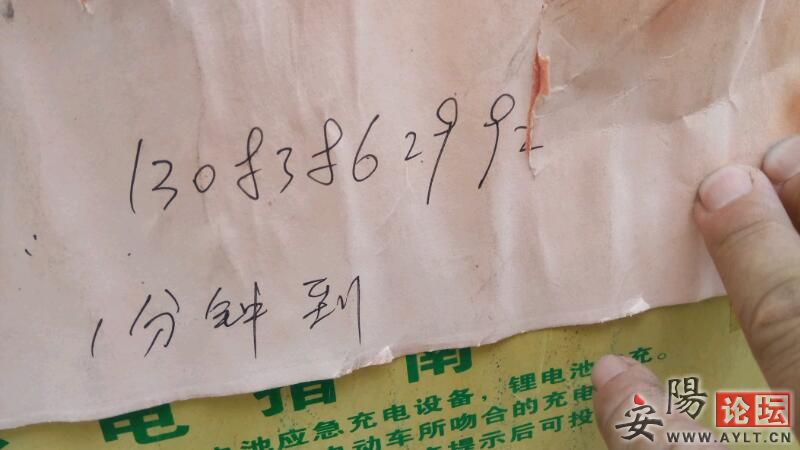 13083862992
1分钟到
电指南
池应急充电设备，锂电池
充。
电动车所吻合的充电
提示后可投
安陽论坛
WWW.AYLT.CN